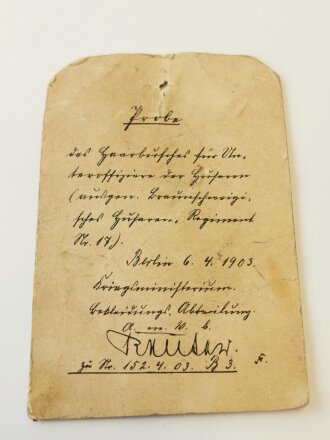 Probe
des Haarbusches für Un-
teroffiziere der Husaren
(ausgen. Braunschweigi-
sches Husaren-Regiment
Nr. 17).
Berlin 6. 4. 1903.
Kriegsministerium.
Bekleidungs-Abteilung.
Reuter.
zu Nr. 152. 4. 03. B 3.